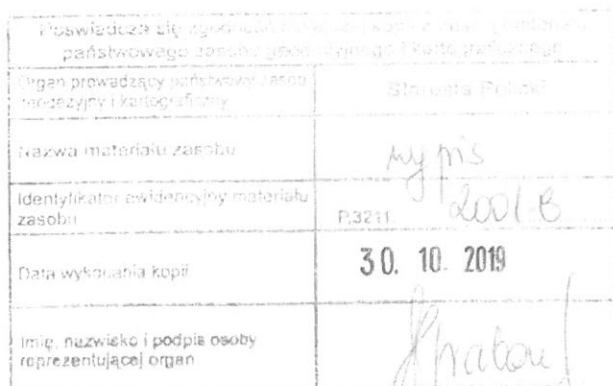 Poświadcza się zgodność niniejszej kopii z treścią materiału
państwowego zasobu geodezyjnego i kartograficznego
Organ prowadzący państwowy zasób
geodezyjny i kartograficzny
Starosta Policki
Nazwa materiału zasobu
wypis
Identyfikator ewidencyjny materiału
zasobu
P.3211. 2001-B
Data wykonania kopii
30. 10. 2019
Imię, nazwisko i podpis osoby
reprezentującej organ